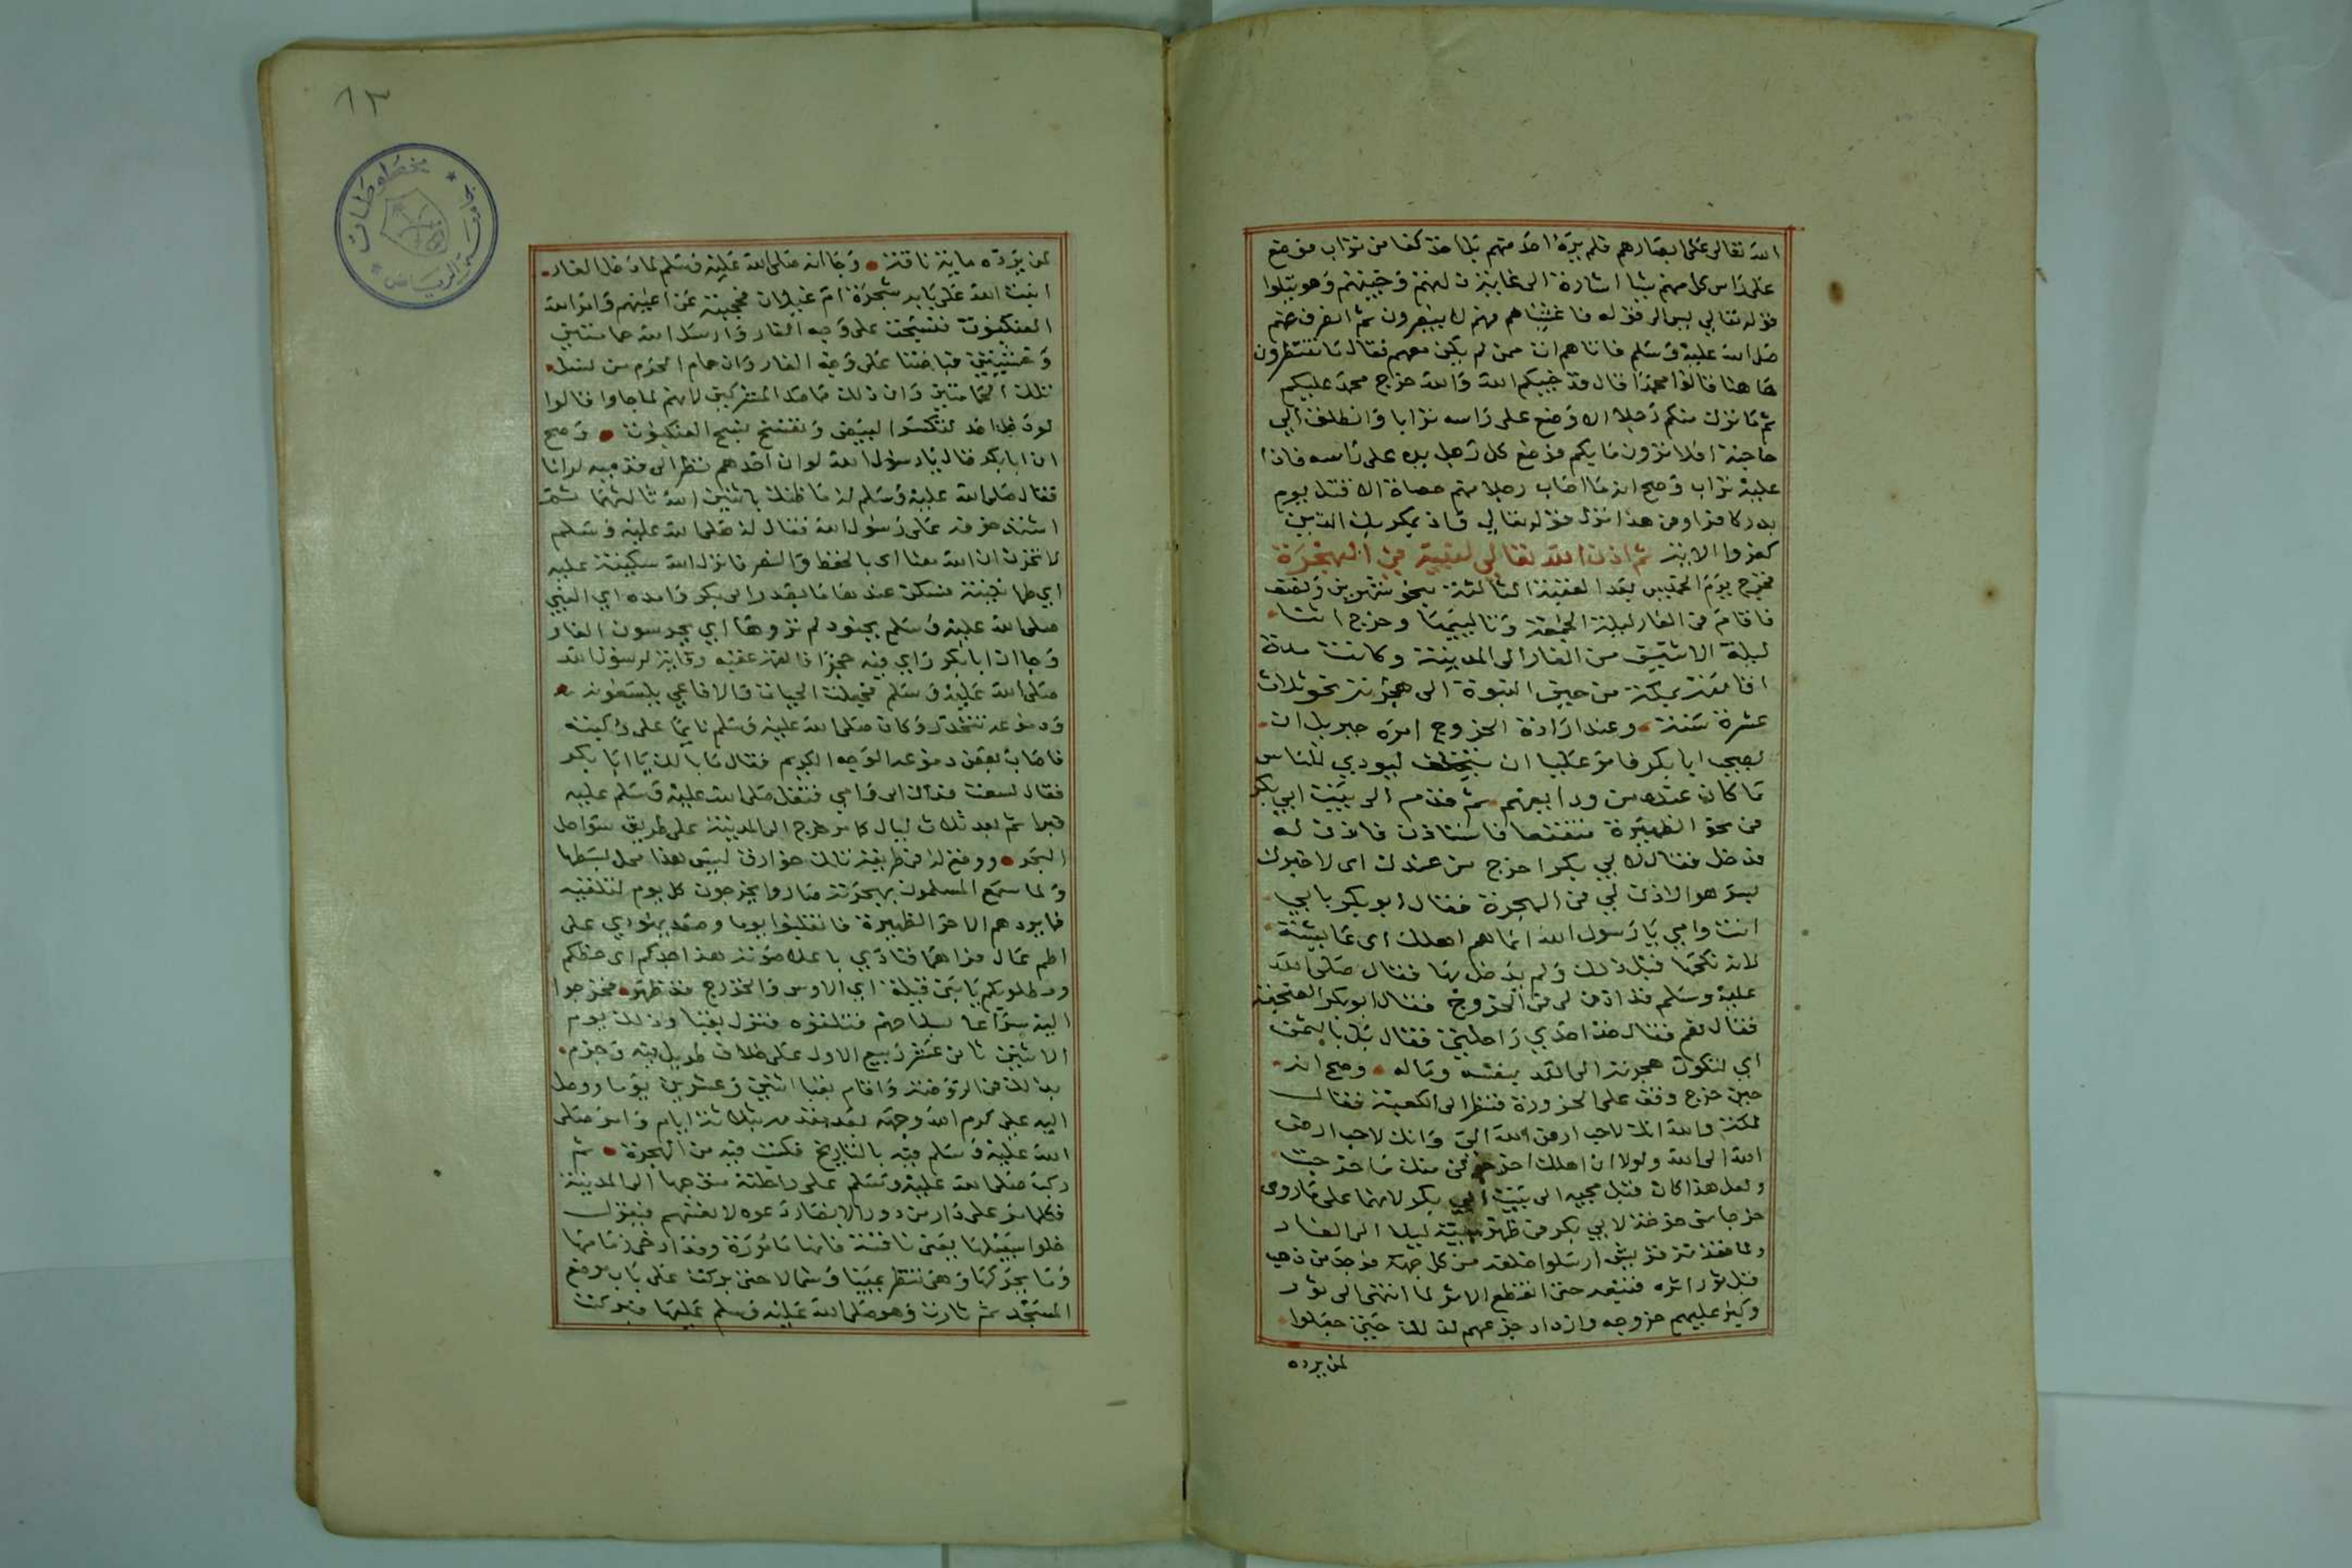 الله تعالى على ابصارهم فلم يره احد منهم بل اخذ كفا من تراب فوضع
على راس كل منهم شيا اشارة الى غاية ذلهم وخيبتهم وهو يتلوا
قوله تعالى يس الى قوله فاغشيناهم فهم لا يبصرون ثم انصرف عنهم
صلى الله عليه وسلم فاتاهم ات ممن لم يكن معهم فقال ما تنتظرون
هاهنا قالوا محمدا قال قد خيبكم الله والله خرج محمد عليكم
ثم ما ترك منكم رجلا الا وضع على راسه ترابا وانطلق الى
حاجته افلا ترون ما بكم فوضع كل رجل يده على راسه فاذا
عليه تراب وصح انه ما اصاب رجلا منهم حصاة الا قتل يوم
بدر كافرا وفى هذا نزل قوله تعالى واذ يمكر بك الذين
كفروا الاية ثم اذن الله تعالى لنبيه في الهجرة
فخرج يوم الخميس بعد العقبة الثالثة بنحو شهرين ونصف
فاقام فى الغار ليلة الجمعة وتالييها وخرج اثنا
ليلة الاثنين من الغار الى المدينة وكانت مدة
اقامته بمكة من حين النبوة الى هجرته نحو ثلاث
عشرة سنة وعند ارادة الخروج امره جبريل ان
يصحب ابا بكر فامر عليا ان يتخلف ليودي للناس
ما كان عنده من ودايعهم ثم قدم الى بيت ابي بكر
فى نحو الظهيرة متقنعا فاستاذن فاذن له
فدخل فقال لابي بكر اخرج من عندك اى لاخبرك
بسر هو الاذن لي فى الهجرة فقال ابو بكر بابي
انت وامي يا رسول الله انما هم اهلك اى عايشة
لانه نكحها قبل ذلك ولم يدخل بها فقال صلى الله
عليه وسلم قد اذن لى فى الخروج فقال ابو بكر الصحبة
فقال نعم فقال خذ احدي راحلتي فقال بل بالثمن
اي لتكون هجرته الى الله بنفسه وماله وصح انه
حين خرج وقف على الحزورة فنظر الى الكعبة فقال
لمكة والله انك لاحب ارض الله الي وانك لاحب ارض
الله الى الله ولولا ان اهلك اخرجونى منك ما خرجت
ولعل هذا كان قبل مجيه الى بيت ابي بكر لانهما على ما روى
خرجا من خوخة لابي بكر فى ظهر بيته ليلا الى الغار
ولما فقدته قريش ارسلوا خلفه من كل جهة فوجد من ذهب
قبل ثور اثره فتبعه حتى انقطع الاثر لما انتهى الى ثور
وكبر عليهم خروجه وازداد جزعهم لذلك حتى جعلوا
لمن يرده
١٣
مخطوطات
جامعة الرياض
لمن يرده ماية ناقة وجا انه صلى الله عليه وسلم لما دخل الغار
انبت الله على بابه شجرة ام غيلان فحجبته عن اعينهم وامر الله
العنكبوت فنسجت على وجه الغار وارسل الله حمامتين
وحشيتين فباضتا على وجه الغار وان حمام الحرم من نسل
تلك الحمامتين وان ذلك مما صد المشركين لانهم لما جاوا قالوا
لو دخل احد لتكسر البيض وتفسخ نسج العنكبوت وصح
ان ابا بكر قال يا رسول الله لو ان احدهم نظر الى قدميه لرانا
فقال صلى الله عليه وسلم له ما ظنك باثنين الله ثالثهما ثم
اشتد حزنه على رسول الله فقال له صلى الله عليه وسلم
لا تحزن ان الله معنا اى بالحفظ والنصر فانزل الله سكينته عليه
اي طمانينته فسكن عندها ما بصدر ابى بكر وايده اي النبي
صلى الله عليه وسلم بجنود لم تروها اي يحرسون الغار
وجا ان ابا بكر راى فيه جحرا فالقمه عقبه وقاية لرسول الله
صلى الله عليه وسلم فجعلت الحيات والافاعي يلسعونه
ودموعه تتحدر وكان صلى الله عليه وسلم نايما على ركبته
فاصاب بعض دموعه الوجه الكريم فقال ما بالك يا ابا بكر
فقال لسعت فداك ابى وامي فتفل صلى الله عليه وسلم عليه
فبرا ثم بعد ثلاث ليال كامر خرج الى المدينة على طريق سواحل
البحر ووقع له فى طريقه ذلك خوارق ليس هذا محل بسطها
ولما سمع المسلمون بهجرته صاروا يخرجون كل يوم لتلقيه
فما يردهم الا حر الظهيرة فانقلبوا يوما وصعد يهودي على
اطم عال فراهما فنادي باعلا صوته هذا جدكم اى حظكم
ومطلوبكم يا بنى قيلة اي الاوس والخزرج قد ظهر فخرجوا
اليه سراعا بسلاحهم فتلقوه فنزل بقبا وذلك يوم
الاثنين ثانى عشر ربيع الاول على خلاف طويل فيه وجزم
بذلك فى الروضة واقام بقبا اثنين وعشرين يوما ووصل
اليه على كرم الله وجهه بعد مقدمه بثلاثة ايام وامر صلى
الله عليه وسلم فيه بالتاريخ فكتب فيه من الهجرة ثم
ركب صلى الله عليه وسلم على راحلته متوجها الى المدينة
فكلما مر على دار من دور الانصار دعوه لانفسهم فيقول
خلوا سبيلها يعنى ناقته فانها مامورة وقد ارخى زمامها
وما يحركها وهى تنظر يمينا وشمالا حتى بركت على باب موضع
المسجد ثم ثارت وهو صلى الله عليه وسلم عليها فبركت